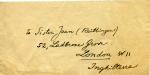 to Sister Jean (Bellinger)
52, Ladbroke Grove
London W11
Inghilterra